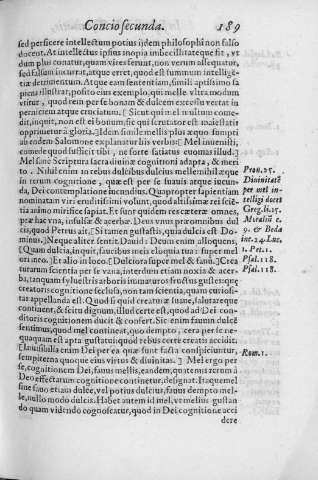 Concio secunda. 189
sed perficere intellectum potius ijdem philosophi non falso
docent. At intellectus ipsius inopia imbecillitateque fit, vt
dum plus conatur, quam vires ferunt, non verum assequatur,
sed falsum incurrat, atque erret, quod est summum intelligen-
tiæ detrimentum. Atque eam sententiam, simili aptissimo sa
piens illustrat, posito eius exemplo, qui melle vltra modum
vtitur, quod rem per se bonam & dulcem excessu vertat in
perniciem atque cruciatum. [Sicut qui mel multum come-
dit, inquit, non est ei bonum, sic qui scrutator est maiestatis
opprimetur à gloria.] Idem simile mellis plus æquo sumpti
ab eodem Salomone explanatur his verbis: [Mel inuenisti,
comede quod sufficit tibi, ne forte satiatus euomas illud.]
Mel sanè Scriptura sacra diuinæ cognitioni adaptat, & meri
to. Nihil enim in rebus dulcibus dulcius mellenihil æque
in rerum cognitione, quæ est per se suauis atque iucun-
da, Dei contemplatione iucundius. Quapropter sapientiam
nominatam viri eruditissimi volunt, quod altissimæ rei scien-
tia animo mirifice sapiat. Et sunt quidem res cæteræ omnes,
præ hac vna, insulsæ & acerbæ. Deus vnus præ omnibus dul
cis, quod Petrus ait, [Si tamen gustastis, quia dulcis est Do-
minus.] Neque aliter sentit Dauid: Deum enim alloquens,
[Quàm dulcia, inquit, faucibus meis eloquia tua: super mel
ori meo.] Et alio in loco. [Dulciora super mel & fauum.] Crea
turarum scientia per se vana, interdum etiam noxia & acer-
ba, tanquam sylvestris arboris immaturos fructus gustes: quę
creatoris cognitione seclusa, non tam scientia, quam curiosi-
tas appellanda est. Quod si quid creaturæ suaue, salutareque
continent, & scitu dignum, illud certe est, quod ad Dei con-
ditoris cognitionem ducit & confert. Sic enim fauum dulcē
sentimus, quod mel contineat, quo dempto, cera per se ne-
quaquam ea gustatui apta: quod rebus certe creatis accidit.
[Inuisibilia enim Dei per ea quæ sunt facta conspiciuntur,
sempiterna quoque eius virtus & diuinitas.] Mel ergo per
se, cognitionem Dei, fauus mellis, eandem, quatenus rerum à
Deo effectarum cognitione continetur, designat. Itaque mel
siue fauo etiam dulce, vel potius dulcius, fauus dempto mel-
le, nullo modo dulcis. Habet autem id mel, vt melius gustan
do quam videndo cognoscatur, quod in Dei cognitione acci
dere
Prou. 25.
Diuinitatē
per mel in-
telligi docet
Greg. li. 15.
Moraliū c.
9. & Beda
int. 24. Luc.
1. Pet. 2.
Psal. 118.
Psal. 118.
Rom. 1.